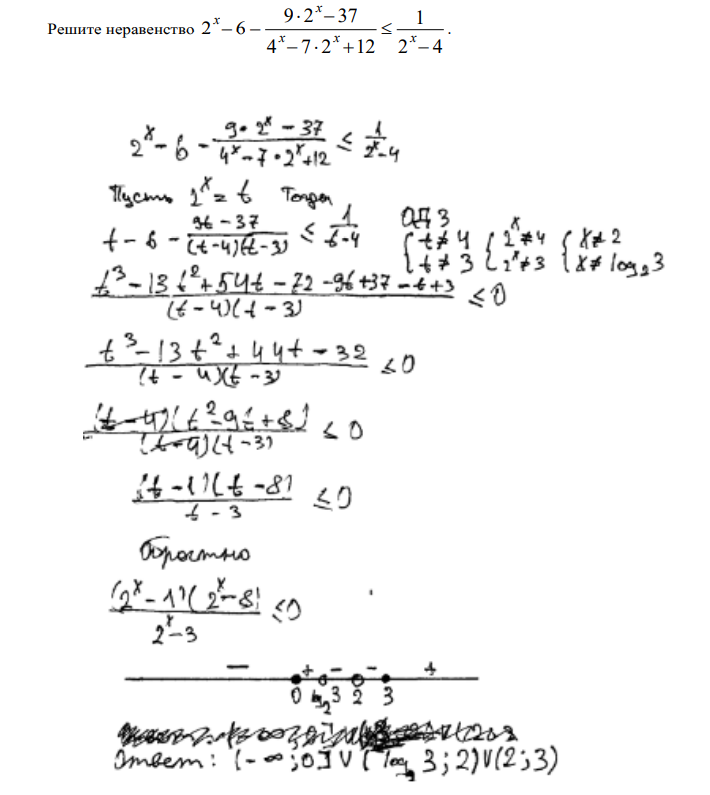 Решите неравенство 2^x − 6 − (9·2^x − 37)/(4^x − 7·2^x + 12) ≤ 1/(2^x − 4).
2^x − 6 − (9·2^x − 37)/(4^x − 7·2^x + 12) ≤ 1/(2^x − 4)
Пусть 2^x = t Тогда
t − 6 − (9t − 37)/((t − 4)(t − 3)) ≤ 1/(t − 4) ОДЗ { t ≠ 4 { 2^x ≠ 4 { x ≠ 2
{ t ≠ 3 { 2^x ≠ 3 { x ≠ log₂3
(t³ − 13t² + 54t − 72 − 9t + 37 − t + 3)/((t − 4)(t − 3)) ≤ 0
(t³ − 13t² + 44t − 32)/((t − 4)(t − 3)) ≤ 0
(t − 4)(t² − 9t + 8)/((t − 4)(t − 3)) ≤ 0
(t − 1)(t − 8)/(t − 3) ≤ 0
Обратно
(2^x − 1)(2^x − 8)/(2^x − 3) ≤ 0
− + − − +
0 log₂3 2 3
Ответ: (−∞; 0] ∪ (log₂3; 2) ∪ (2; 3)